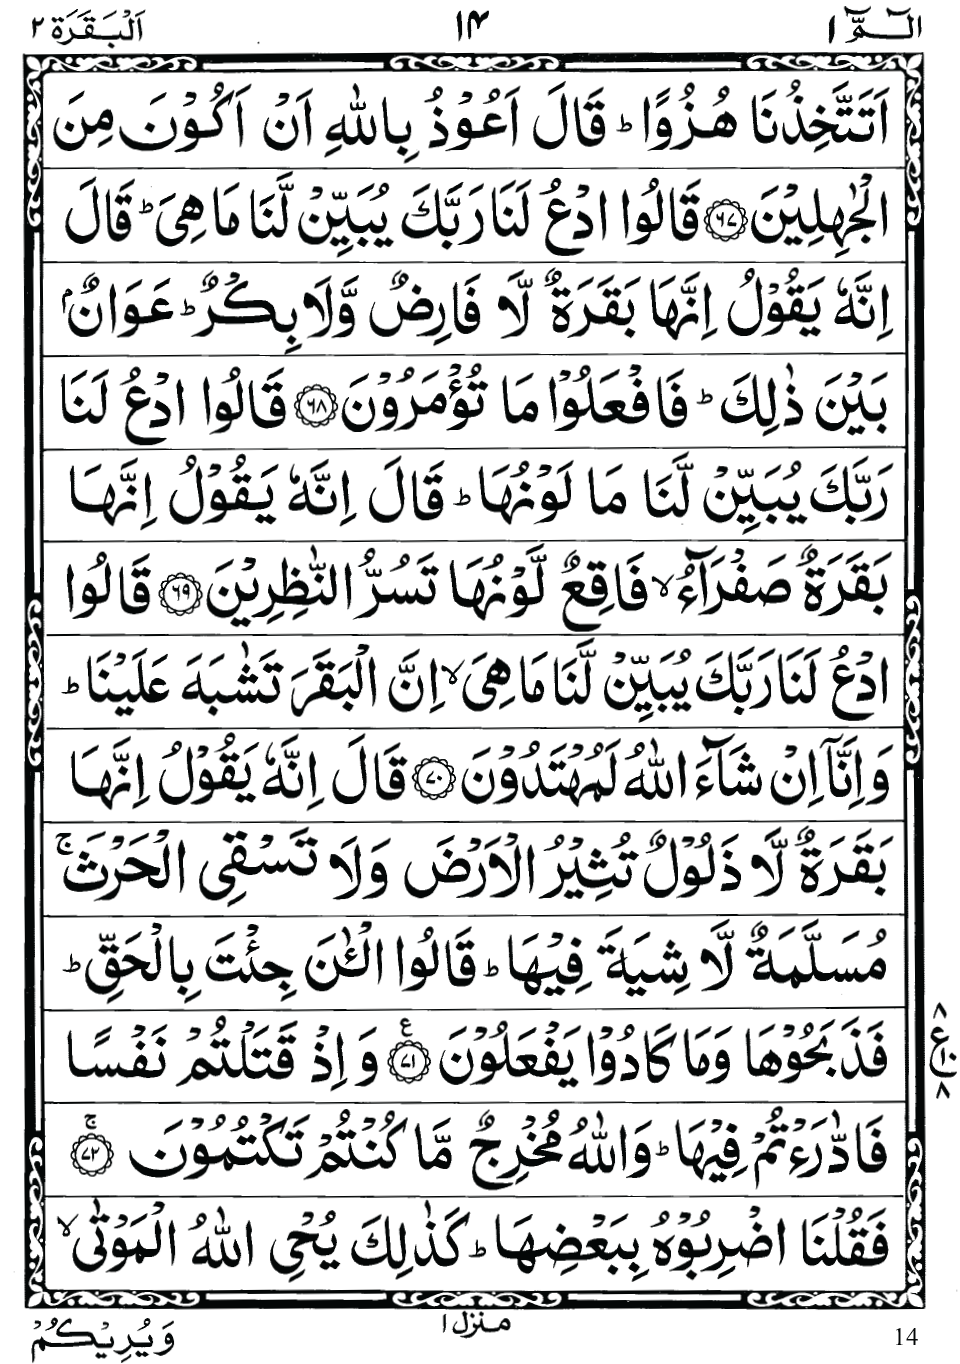 الٓمّٓ ١
١٤
اَلْبَقَرَة ٢
اَتَتَّخِذُنَا هُزُوًا ؕ قَالَ اَعُوْذُ بِاللّٰهِ اَنْ اَكُوْنَ مِنَ
الْجٰهِلِيْنَ ﴿٦٧﴾ قَالُوا ادْعُ لَنَا رَبَّكَ يُبَيِّنْ لَّنَا مَا هِىَ ؕ قَالَ
اِنَّهٗ يَقُوْلُ اِنَّهَا بَقَرَةٌ لَّا فَارِضٌ وَّلَا بِكْرٌ ؕ عَوَانٌۢ
بَيْنَ ذٰلِكَ ؕ فَافْعَلُوْا مَا تُؤْمَرُوْنَ ﴿٦٨﴾ قَالُوا ادْعُ لَنَا
رَبَّكَ يُبَيِّنْ لَّنَا مَا لَوْنُهَا ؕ قَالَ اِنَّهٗ يَقُوْلُ اِنَّهَا
بَقَرَةٌ صَفْرَآءُ ۙ فَاقِعٌ لَّوْنُهَا تَسُرُّ النّٰظِرِيْنَ ﴿٦٩﴾ قَالُوا
ادْعُ لَنَا رَبَّكَ يُبَيِّنْ لَّنَا مَا هِىَ ۙ اِنَّ الْبَقَرَ تَشٰبَهَ عَلَيْنَا ؕ
وَاِنَّآ اِنْ شَآءَ اللّٰهُ لَمُهْتَدُوْنَ ﴿٧٠﴾ قَالَ اِنَّهٗ يَقُوْلُ اِنَّهَا
بَقَرَةٌ لَّا ذَلُوْلٌ تُثِيْرُ الْاَرْضَ وَلَا تَسْقِى الْحَرْثَ ۚ
مُسَلَّمَةٌ لَّا شِيَةَ فِيْهَا ؕ قَالُوا الْـٰٔنَ جِئْتَ بِالْحَقِّ ؕ
فَذَبَحُوْهَا وَمَا كَادُوْا يَفْعَلُوْنَ ﴿٧١﴾ ع وَاِذْ قَتَلْتُمْ نَفْسًا
٨
ع
١٠
٨
فَادّٰرَءْتُمْ فِيْهَا ؕ وَاللّٰهُ مُخْرِجٌ مَّا كُنْتُمْ تَكْتُمُوْنَ ﴿٧٢﴾ ۚ
فَقُلْنَا اضْرِبُوْهُ بِبَعْضِهَا ؕ كَذٰلِكَ يُحْىِ اللّٰهُ الْمَوْتٰى ۙ
منزل ١
وَيُرِيْكُمْ
14